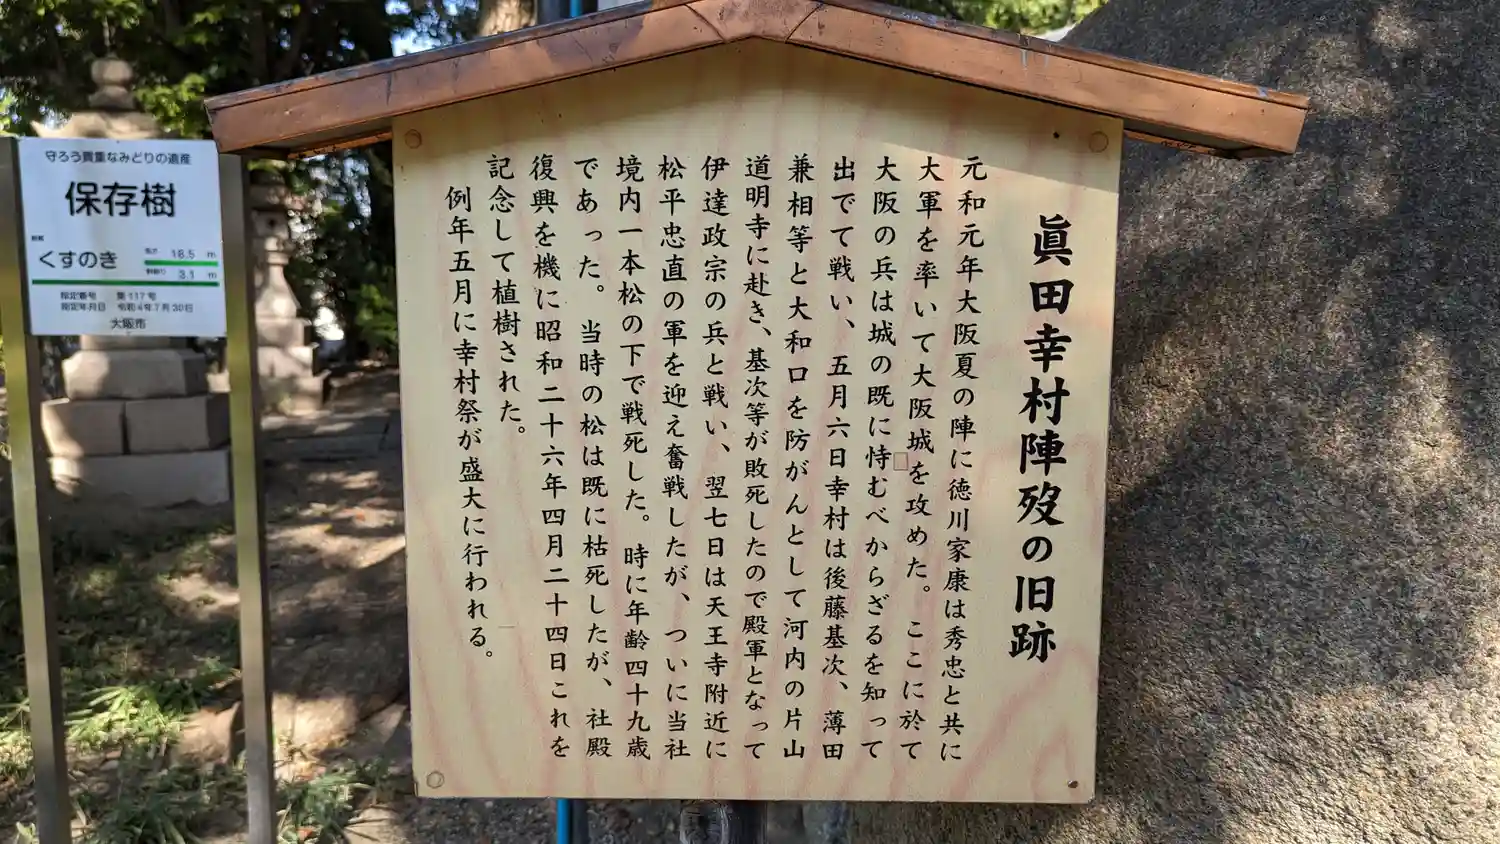 眞田幸村陣歿の旧跡
元和元年大阪夏の陣に徳川家康は秀忠と共に
大軍を率いて大阪城を攻めた。ここに於て
大阪の兵は城の既に恃むべからざるを知って
出でて戦い、五月六日幸村は後藤基次、薄田
兼相等と大和口を防がんとして河内の片山
道明寺に赴き、基次等が敗死したので殿軍となって
伊達政宗の兵と戦い、翌七日は天王寺附近に
松平忠直の軍を迎え奮戦したが、ついに当社
境内一本松の下で戦死した。時に年齢四十九歳
であった。当時の松は既に枯死したが、社殿
復興を機に昭和二十六年四月二十四日これを
記念して植樹された。
例年五月に幸村祭が盛大に行われる。
守ろう貴重なみどりの遺産
保存樹
樹種
くすのき
高さ 18.5 m
幹周り 3.1 m
指定番号 第117号
指定年月日 令和4年7月30日
大阪市